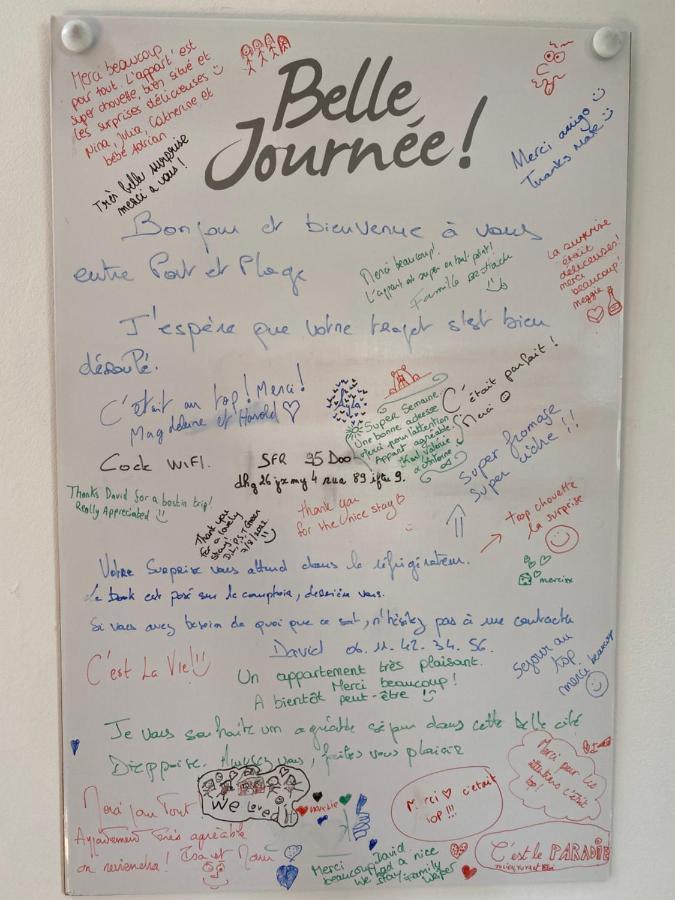 Merci beaucoup
pour tout. L'appart' est
super chouette, bien situé et
les surprises délicieuses
Nina, Julia, Catherine et
bébé Adrian
Très belle surprise
merci a vous !
Belle
Journée !
Merci amigo
Thanks mate
Bonjour et bienvenue à vous
entre Port et Plage
Merci beaucoup!
L'appart est super en tout point!
Famille
La surprise
était
délicieuses!
merci
beaucoup!
Meggie
J'espère que votre trajet s'est bien
déroulé.
C'était au top! Merci!
Magdeleine et Harold
Ayla
Super Semaine
Une bonne adresse
Merci pour l'attention
Appart agréable.
Valérie
C'était parfait !
Merci
Super fromage
Super cidre !!
Code WIFI. SFR 95 Doo
dhg26 jxmy4 nua 89 iftu 9.
Thanks David for a bostin trip!
Really Appreciated
Thank you
for a lovely
stay!
thank you
for the nice stay
trop chouette
la surprise
mercixx
Votre Surprise vous attend dans le réfrigérateur.
Le book est posé sur le comptoir, derrière vous.
Si vous avez besoin de quoi que ce soit, n'hésitez pas à me contacter
David 06. 11. 42. 34. 56.
C'est La Vie!
Un appartement très plaisant.
Merci beaucoup !
A bientôt peut-être !
Sejour au
top
merci beaucoup
Je vous souhaite un agréable séjour dans cette belle cité
Dieppoise. Amusez vous, faites vous plaisir
Merci pour les
attentions c'était
top!
We Loved it
Merci pour Tout
Appartement très agréable
on reviendra !
Merci c'était
top !!!
Merci
beaucoup David.
We had a nice
stay. Family
C'est le PARADIE